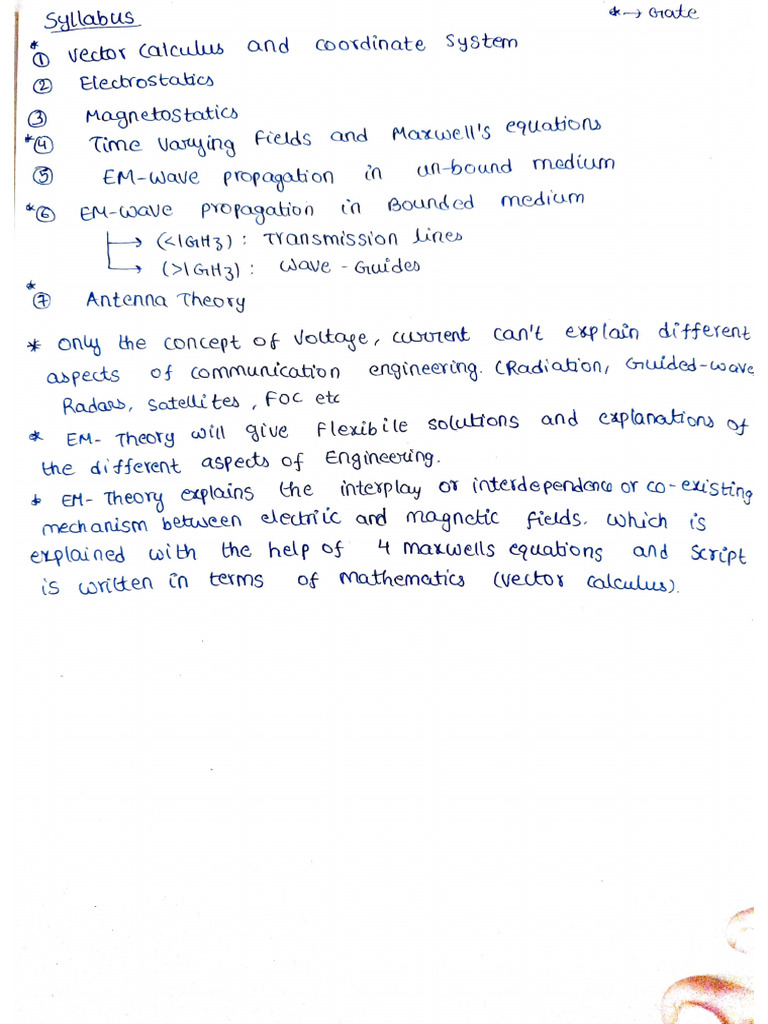 Syllabus
* → Gate
* ① Vector Calculus and coordinate System
② Electrostatics
③ Magnetostatics
* ④ Time Varying Fields and Maxwell's equations
⑤ EM-Wave propagation in un-bound medium
* ⑥ EM-Wave propagation in Bounded medium
→ (<1GHz) : Transmission lines
→ (>1GHz) : Wave-Guides
* ⑦ Antenna Theory
* only the concept of Voltage, current can't explain different
aspects of communication engineering. (Radiation, Guided-wave
Radars, Satellites, FOC etc
* EM-Theory will give Flexibile solutions and explanations of
the different aspects of Engineering.
* EM-Theory explains the interplay or interdependence or co-existing
mechanism between electriic and magnetic fields. Which is
explained with the help of 4 maxwells equations and script
is written in terms of Mathematics (Vector Calculus).